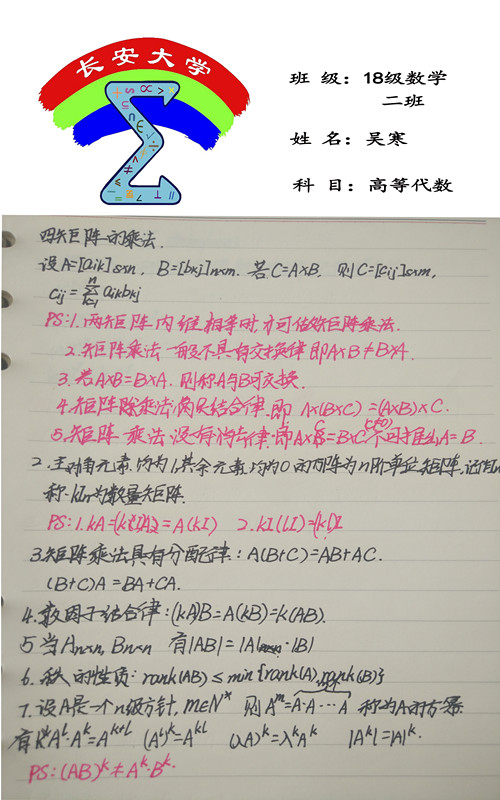 长安大学
班 级：18级数学
二班
姓 名：吴寒
科 目：高等代数
四矩阵的乘法.
设A=[aik]s×n, B=[bkj]n×m. 若C=A×B, 则C=[cij]s×m,
cij=∑k=1n aikbkj
PS:1.两矩阵内维相等时,才可做矩阵乘法.
2.矩阵乘法一般不具有交换律即A×B≠B×A.
3.若A×B=B×A.则称A与B可交换.
4.矩阵乘法满足结合律.即 A×(B×C)=(A×B)×C.
5.矩阵乘法没有消去律.即A×C=B×C(C≠0)不可推出A=B.
2.主对角元素均为1,其余元素均为0的方阵为n阶单位矩阵,记为In
称kIn为数量矩阵.
PS:1.kA=(kI)A=A(kI) 2.kI(lI)=(kl)I
3.矩阵乘法具有分配律:A(B+C)=AB+AC.
(B+C)A=BA+CA.
4.数因子结合律:(kA)B=A(kB)=k(AB).
5当An×n,Bn×n 有|AB|=|A|·|B|
6.秩的性质:rank(AB)≤min{rank(A),rank(B)}
7.设A是一个n级方针,m∈N* 则A^m=A·A···A 称为A的方幂
有A^l·A^k=A^k+l (A^l)^k=A^kl (λA)^k=λ^kA^k |A^k|=|A|^k.
PS:(AB)^k≠A^k·B^k.